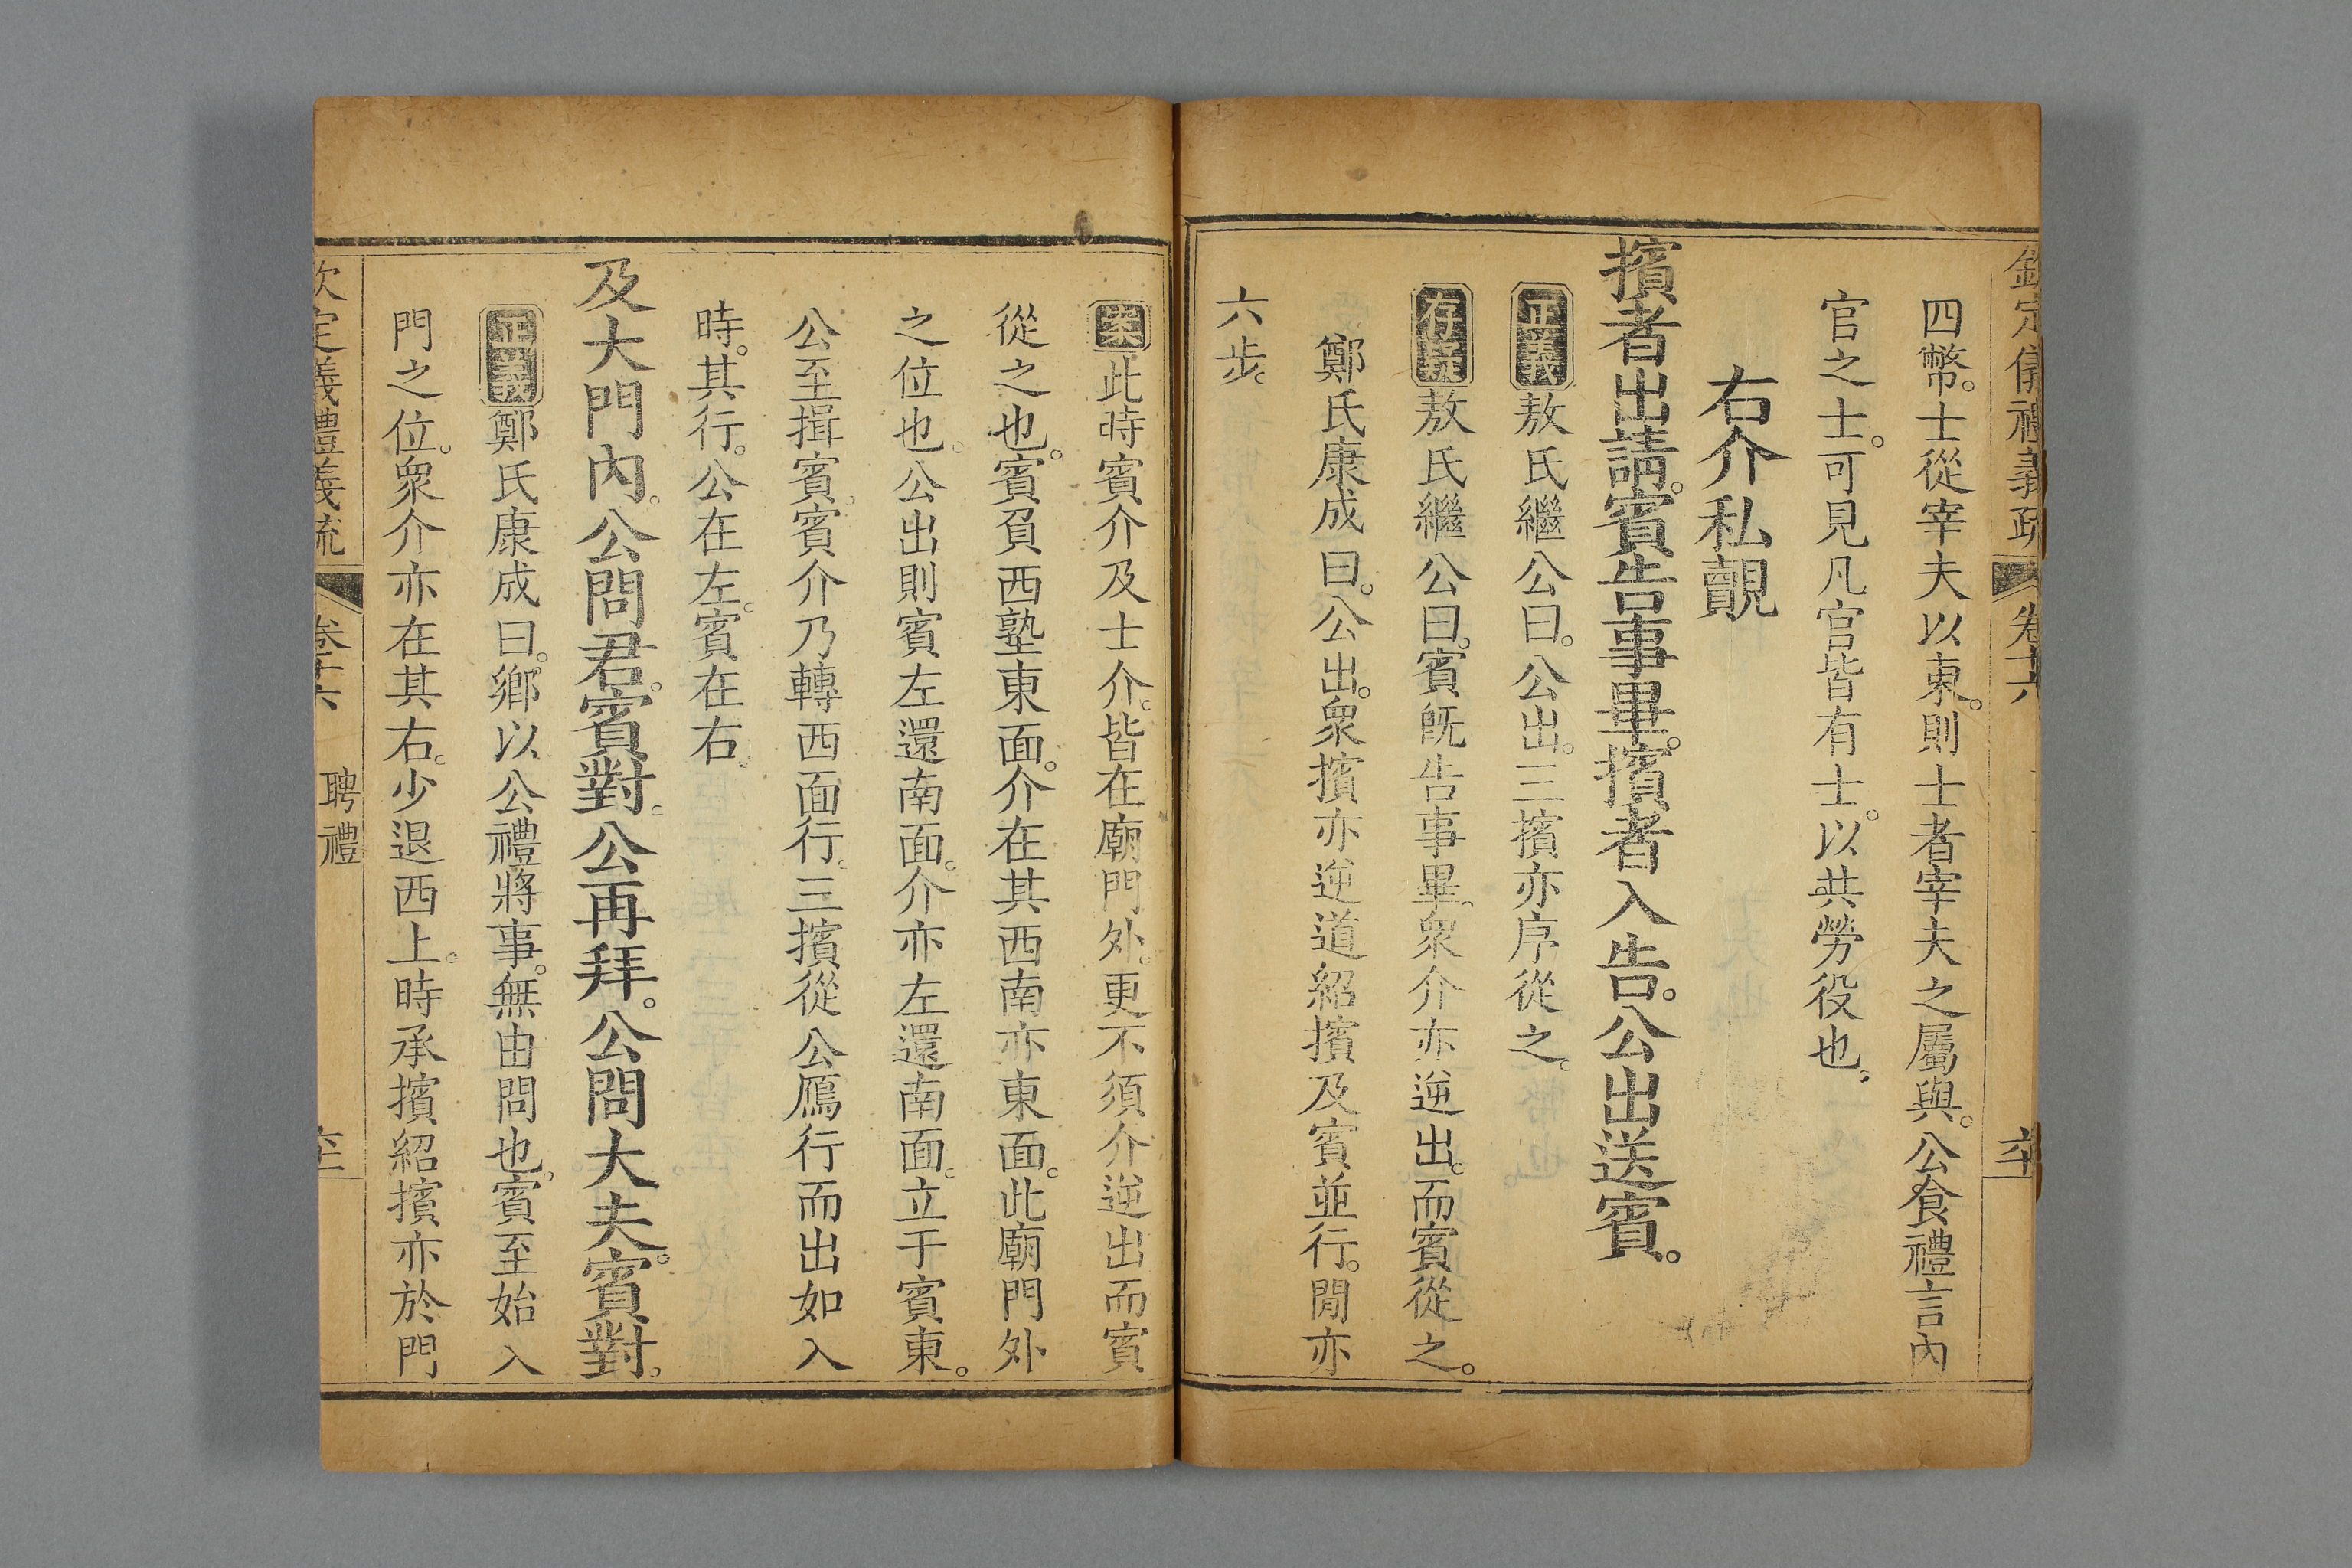 欽定儀禮義疏 卷十六
四幣。士從宰夫以東。則士者宰夫之屬與。公食禮言內
官之士。可見凡官皆有士。以共勞役也。
右介私覿
擯者出請。賓告事畢。擯者入告。公出送賓。
正義敖氏繼公曰。公出。三擯亦序從之。
存疑敖氏繼公曰。賓旣告事畢。衆介亦逆出。而賓從之。
鄭氏康成曰。公出。衆擯亦逆道紹擯及賓並行。閒亦
六步。
案此時賓介及士介。皆在廟門外。更不須介逆出而賓
從之也。賓負西塾東面。介在其西南亦東面。此廟門外
之位也。公出則賓左還南面。介亦左還南面。立于賓東。
公至揖賓。賓介乃轉西面行。三擯從公鴈行而出如入
時。其行。公在左。賓在右。
及大門內。公問君。賓對。公再拜。公問大夫。賓對。
正義鄭氏康成曰。鄉以公禮將事。無由問也。賓至始入
門之位。衆介亦在其右。少退西上。時承擯紹擯亦於門
欽定義禮義疏 卷十六 聘禮